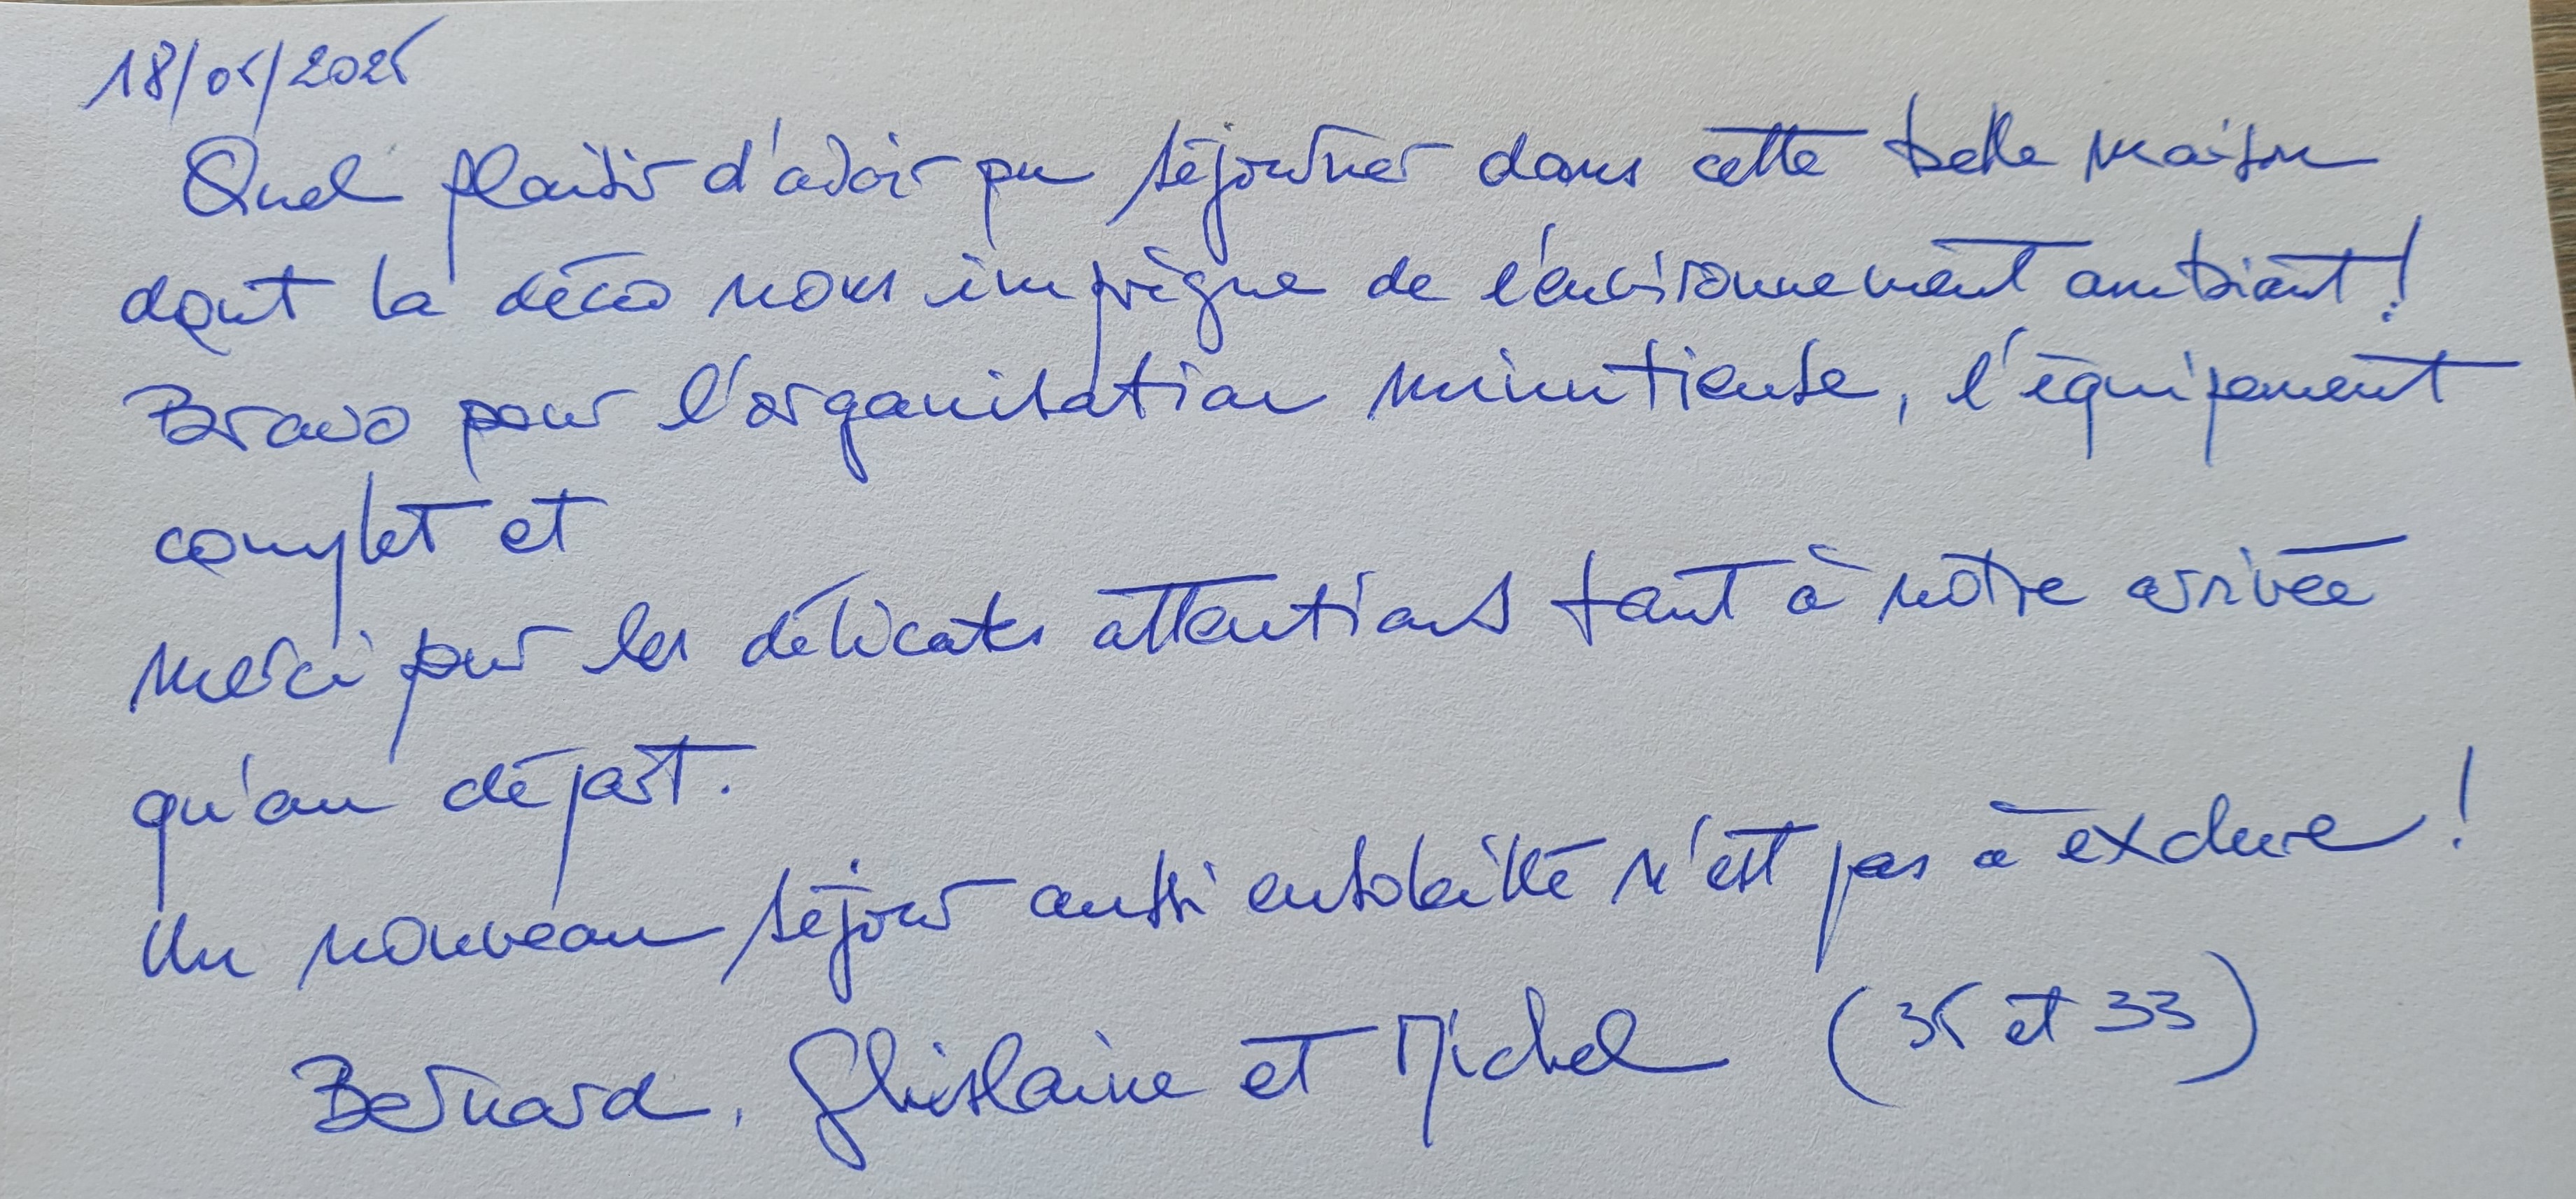 18/05/2025
Quel plaisir d'avoir pu séjourner dans cette belle maison
dont la déco nous imprègne de l'environnement ambiant !
Bravo pour l'organisation minutieuse, l'équipement
complet et
merci pour les délicates attentions tant à notre arrivée
qu'au départ.
Un nouveau séjour aussi ensoleillé n'est pas à exclure !
Bernard, Ghislaine et Michel (35 et 33)